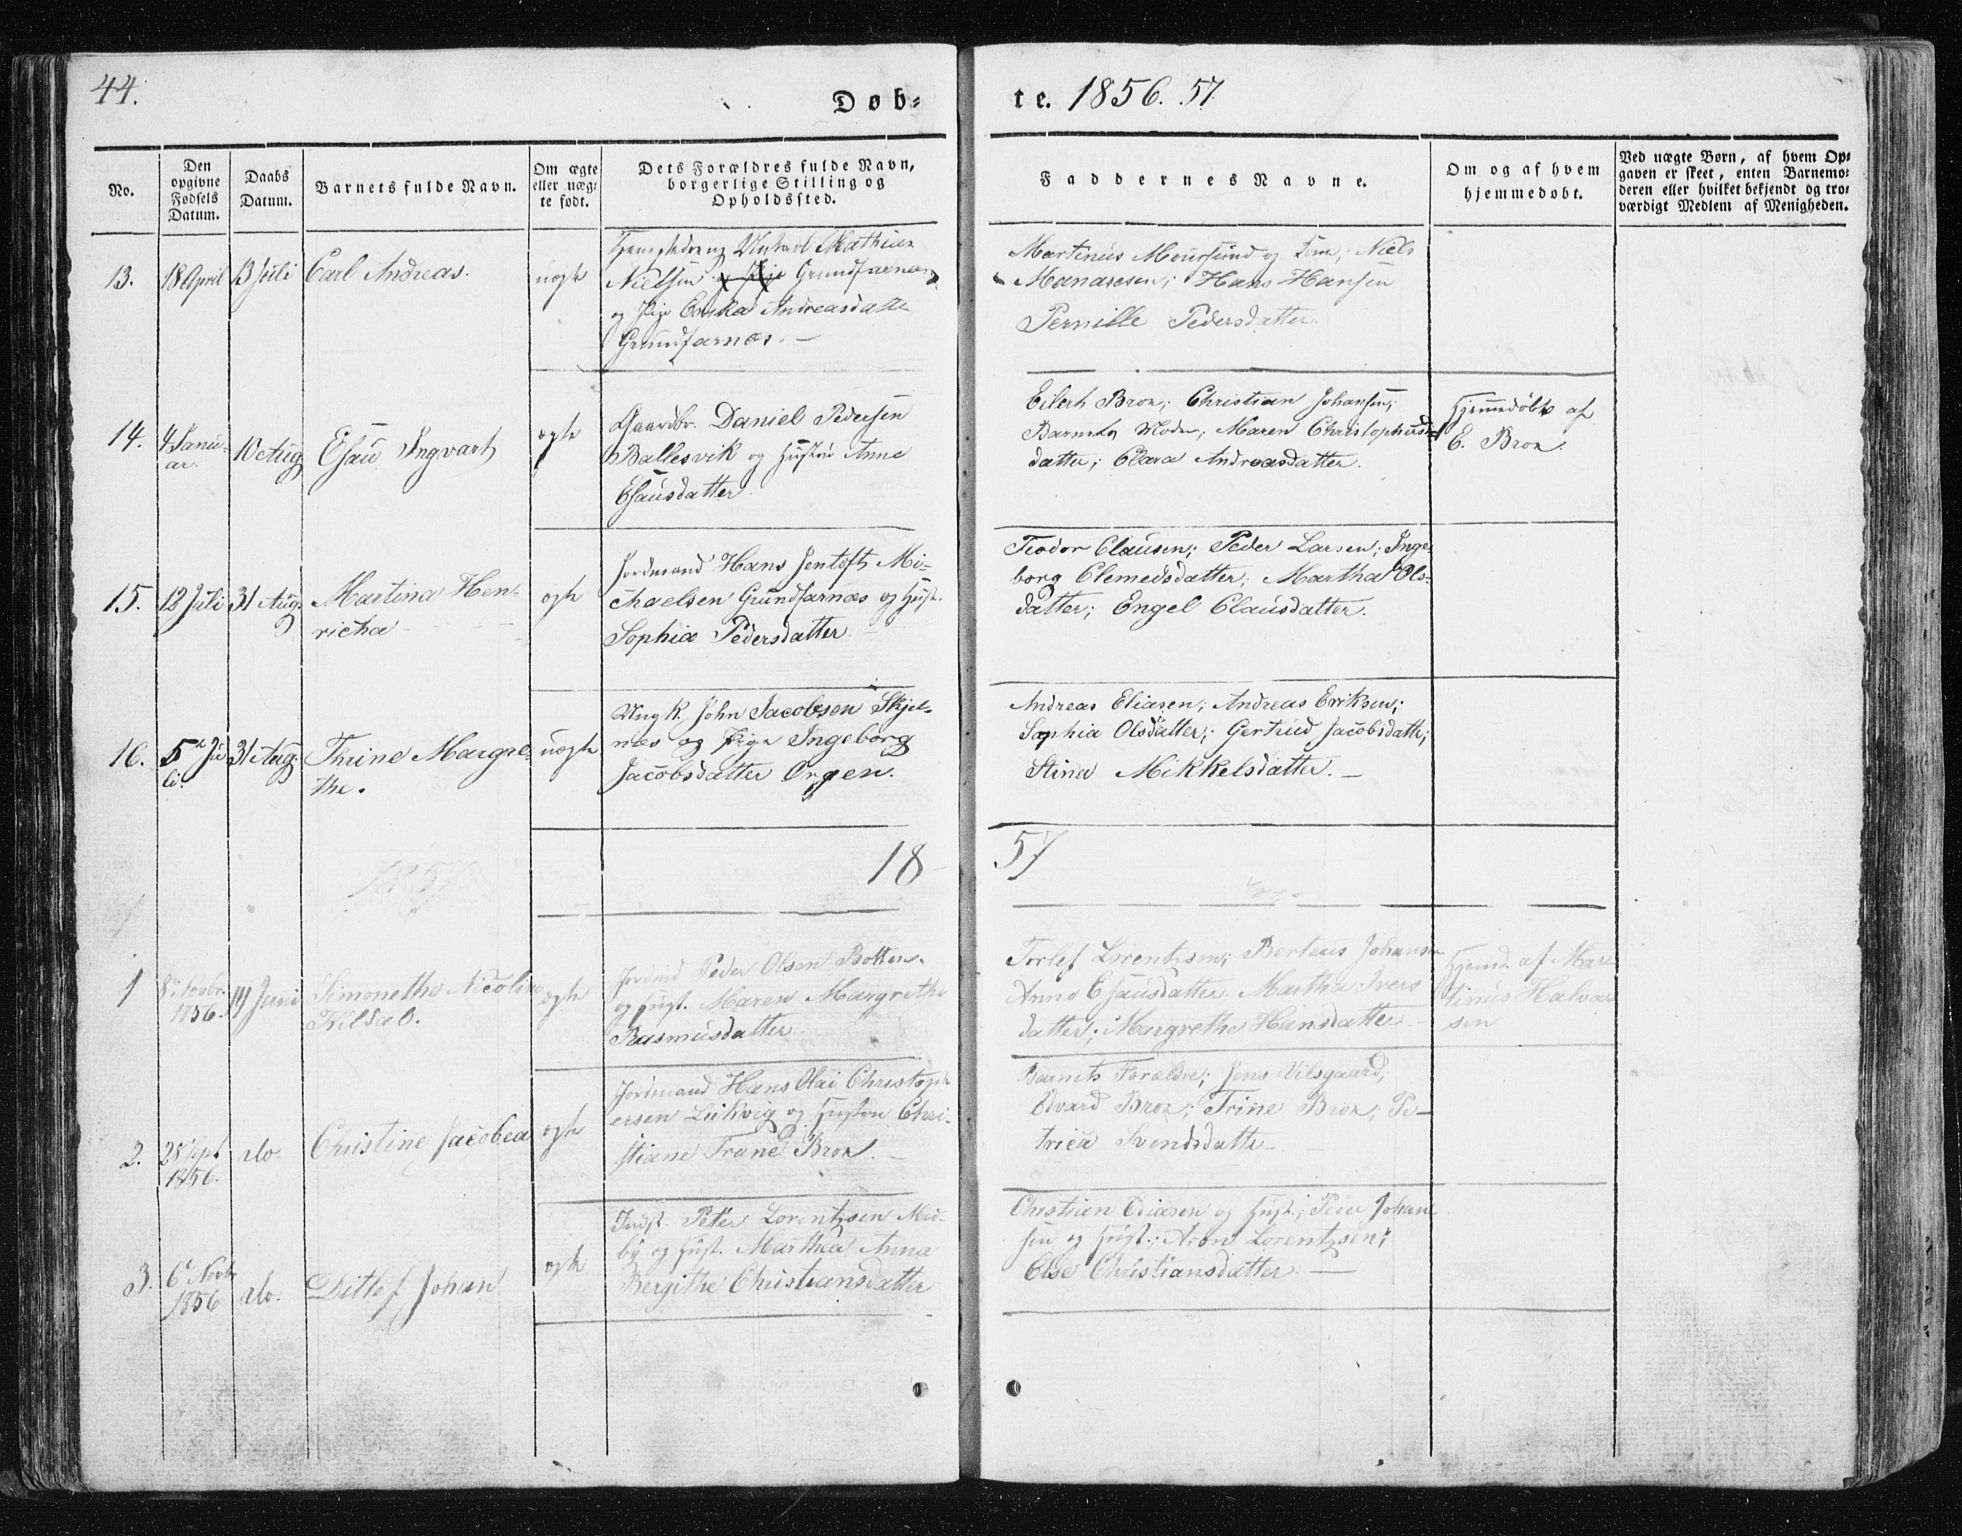 44.
Døb-
te. 1856. 57
No.
Den
opgivne
Fødsels
Datum.
Daabs
Datum.
Barnets fulde Navn.
Om ægte
eller uæg-
te født.
Dets Forældres fulde Navn,
borgerlige Stilling og
Opholdssted.
Faddernes Navne.
Om og af hvem
hjemmedøbt.
Ved uægte Børn, af hvem Op-
gaven er skeet, enten Barnemo-
deren eller hvilket bekjendt og tro-
værdigt Medlem af Menigheden.
13.
18 April
13 Juli
Carl Andreas.
uægte
Mathias
Nielsen Grundfarnæs
og Pige Andreasdatte
Grundfarnæs. —
Martinus Moursund og Kone; Niels
Hans Hansen
Pernille Pedersdatter
14.
4 Janu-
ar.
10 Aug
Esau Ingvart
ægte
Gaardbr. Daniel Pedersen
Ballesvik og Hustru Anne
Esausdatter
Eilert Brox; Christian Johansen;
Barnets Moder; Maren Christophers-
datter; Clara Andreasdatter.
Hjemmedøbt af
E. Brox.
15.
12 Juli
31 Aug.
Martina Hen-
richa
ægte
Jordmand Hans Jentoft Mi-
chaelsen Grundfarnæs og Hust.
Sophia Pedersdatter
Teodor Clausen; Peder Larsen; Inge-
borg Clemedsdatter; Martha Ols-
datter; Engel Clausdatter.
16.
5 Ju-
li.
31 Aug.
Thrine Margre-
the.
uægte
Ungk. John Jacobsen Skjel-
næs og Pige Ingeborg
Jacobsdatter Ørgen.
Andreas Eliasen; Andreas Eriksen;
Sophia Olsdatter; Gertrud Jacobsdatte;
Stina Mikkelsdatter. —
1857
18
57
1
8 Novbr.
1856.
14 Juni
Simonetha Nicoline
Kildal.
ægte
Jordmd Peder Olsen Botten
og Hust. Maren Margrethe
Rasmusdatter
Torlef Lorentzsen; Berteus Johansen
Anne Esausdatter. Martha Ivers
datter; Margrethe Hansdatte
Hjemd. af Mar-
tinus Halvar
sen
2.
28 Sept
1856.
do.
Christine Jacobea
ægte
Jordmand Hans Olai Christoph
ersen Lukvig og Hustru Chri-
stiane Trane Brox. —
Barnets Forældre; Jens Vilsgaard;
Edvard Brox; Trine Brox; Pe-
trica Svendsdatte
3.
6 Novb
1856
do.
Ditlef Johan
ægte
Indst. Peter Lorentzsen Med-
by og Hust. Marthea Anna
Bergithe Christiansdatter
Christian Ediasen og Hust.; Peder Johan
sen og Hust.; Aron Lorentzsen;
Else Christiansdatter —